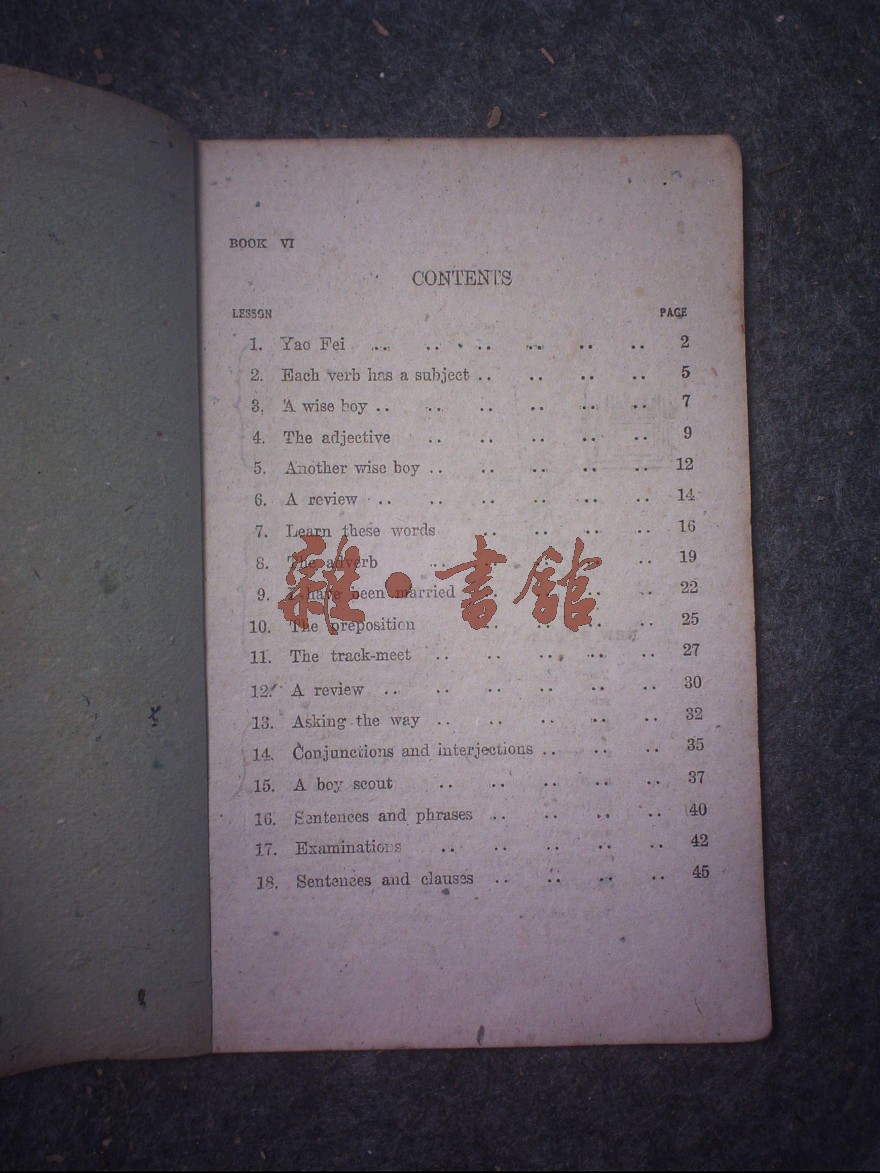 BOOK VI
CONTENTS
LESSON PAGE
1. Yao Fei .. .. .. .. .. .. 2
2. Each verb has a subject .. .. .. .. 5
3. A wise boy .. .. .. .. .. .. 7
4. The adjective .. .. .. .. .. 9
5. Another wise boy .. .. .. .. .. 12
6. A review .. .. .. .. .. .. 14
7. Learn these words .. .. .. .. 16
8. The adverb .. .. .. .. .. 19
9. I have been married .. .. .. .. 22
10. The preposition .. .. .. .. 25
11. The track-meet .. .. .. .. .. 27
12. A review .. .. .. .. .. .. 30
13. Asking the way .. .. .. .. .. 32
14. Conjunctions and interjections .. .. .. 35
15. A boy scout .. .. .. .. .. 37
16. Sentences and phrases .. .. .. .. 40
17. Examinations .. .. .. .. .. 42
18. Sentences and clauses .. .. .. .. 45
雜·書館